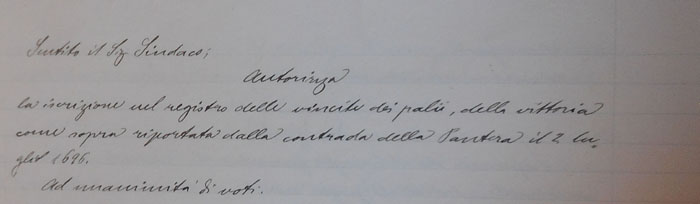 Sentito il Sig Sindaco;
Autorizza
la iscrizione nel registro delle vincite dei palii, della vittoria
come sopra riportata dalla contrada della Pantera il 2 lu=
glio 1696.
Ad unanimità di voti.